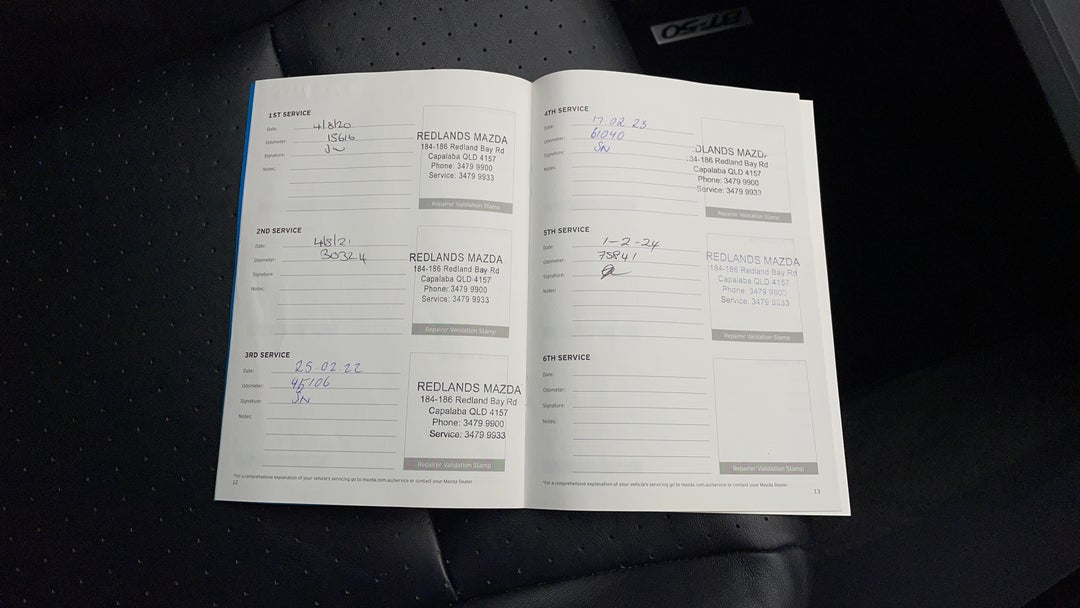 BT-50
1ST SERVICE
Date: 4/8/20
Odometer: 15616
Signature: JW
Notes:
REDLANDS MAZDA
184-186 Redland Bay Rd
Capalaba QLD 4157
Phone: 3479 9900
Service: 3479 9933
Repairer Validation Stamp
2ND SERVICE
Date: 4/8/21
Odometer: 30324
Signature:
Notes:
REDLANDS MAZDA
184-186 Redland Bay Rd
Capalaba QLD 4157
Phone: 3479 9900
Service: 3479 9933
Repairer Validation Stamp
3RD SERVICE
Date: 25.02.22
Odometer: 45106
Signature: SN
Notes:
REDLANDS MAZDA
184-186 Redland Bay Rd
Capalaba QLD 4157
Phone: 3479 9900
Service: 3479 9933
Repairer Validation Stamp
*For a comprehensive explanation of your vehicle's servicing go to mazda.com.au/service or contact your Mazda Dealer
12
4TH SERVICE
Date: 17 02 23
Odometer: 61040
Signature: SN
Notes:
DLANDS MAZD
34-186 Redland Bay Rd
Capalaba QLD 4157
Phone: 3479 9900
Service: 3479 9933
Repairer Validation Stamp
5TH SERVICE
Date: 1-2-24
Odometer: 75841
Signature:
Notes:
REDLANDS MAZDA
184-186 Redland Bay Rd
Capalaba QLD 4157
Phone: 3479 9900
Service: 3479 9933
Repairer Validation Stamp
6TH SERVICE
Date:
Odometer:
Signature:
Notes:
Repairer Validation Stamp
*For a comprehensive explanation of your vehicle's servicing go to mazda.com.au/service or contact your Mazda Dealer
13